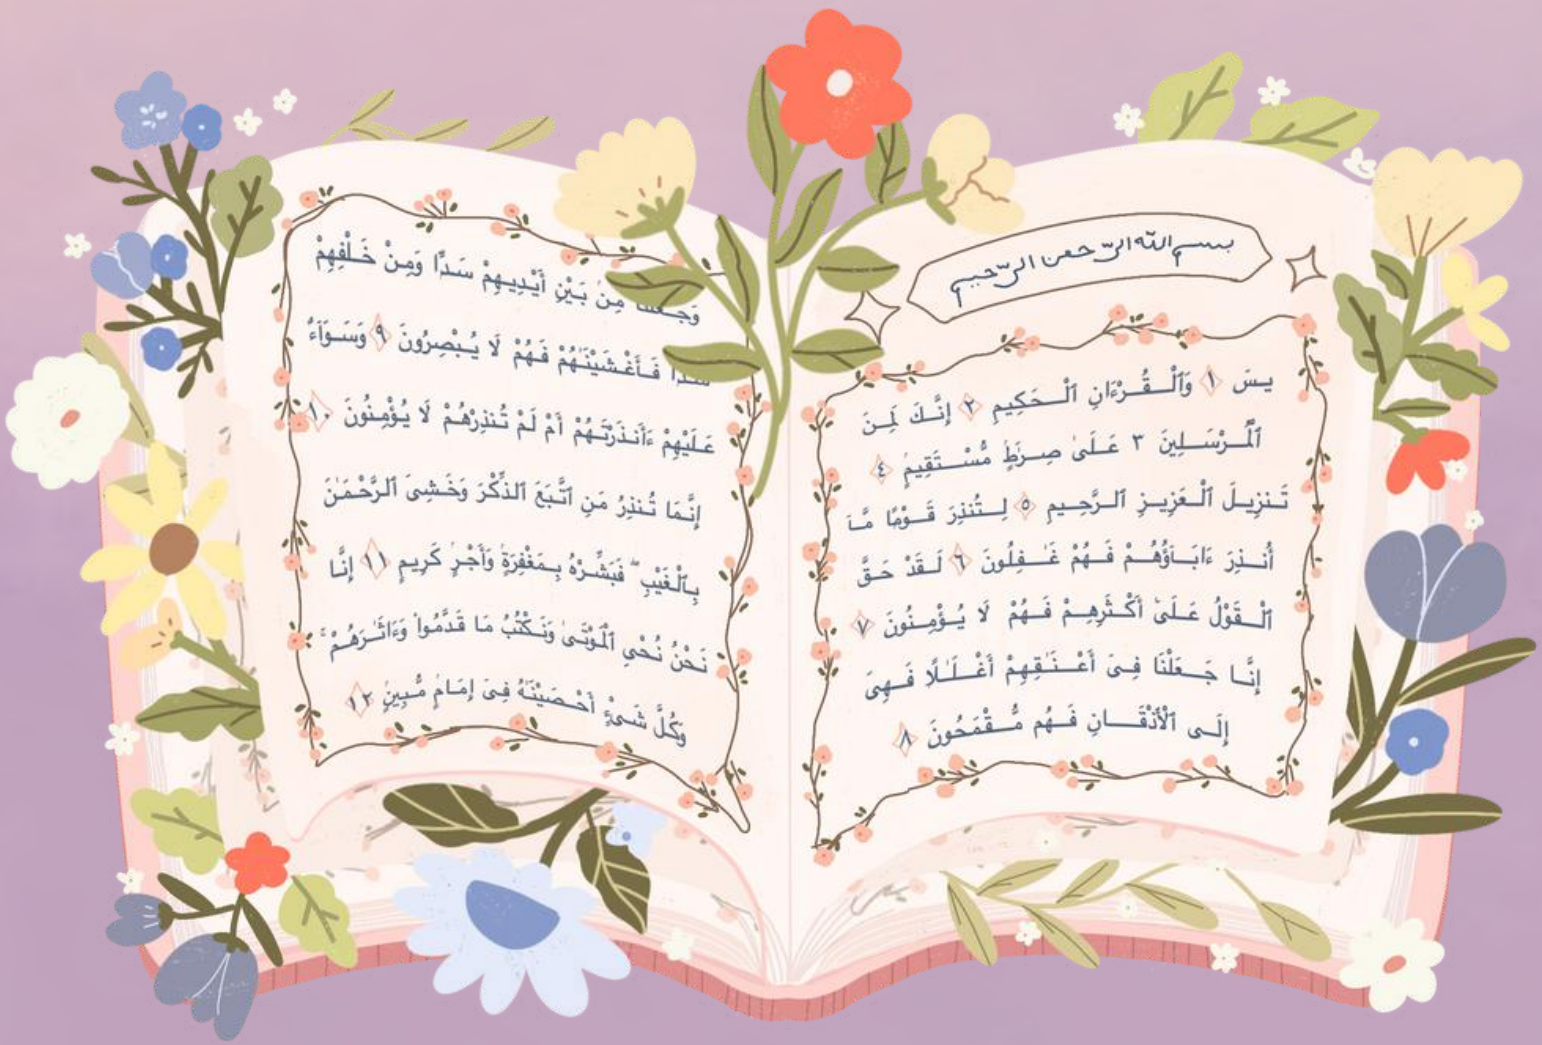 بسم الله الرّحمن الرّحيم
يسٓ ١ وَٱلْقُرْءَانِ ٱلْحَكِيمِ ٢ إِنَّكَ لَمِنَ
ٱلْمُرْسَلِينَ ٣ عَلَىٰ صِرَٰطٍ مُّسْتَقِيمٍ ٤
تَنزِيلَ ٱلْعَزِيزِ ٱلرَّحِيمِ ٥ لِتُنذِرَ قَوْمًا مَّآ
أُنذِرَ ءَابَآؤُهُمْ فَهُمْ غَٰفِلُونَ ٦ لَقَدْ حَقَّ
ٱلْقَوْلُ عَلَىٰٓ أَكْثَرِهِمْ فَهُمْ لَا يُؤْمِنُونَ ٧
إِنَّا جَعَلْنَا فِىٓ أَعْنَٰقِهِمْ أَغْلَٰلًا فَهِىَ
إِلَى ٱلْأَذْقَانِ فَهُم مُّقْمَحُونَ ٨
مِنۢ بَيْنِ أَيْدِيهِمْ سَدًّا وَمِنْ خَلْفِهِمْ
فَأَغْشَيْنَٰهُمْ فَهُمْ لَا يُبْصِرُونَ ٩ وَسَوَآءٌ
عَلَيْهِمْ ءَأَنذَرْتَهُمْ أَمْ لَمْ تُنذِرْهُمْ لَا يُؤْمِنُونَ ١٠
إِنَّمَا تُنذِرُ مَنِ ٱتَّبَعَ ٱلذِّكْرَ وَخَشِىَ ٱلرَّحْمَٰنَ
بِٱلْغَيْبِ ۖ فَبَشِّرْهُ بِمَغْفِرَةٍ وَأَجْرٍ كَرِيمٍ ١١ إِنَّا
نَحْنُ نُحْىِ ٱلْمَوْتَىٰ وَنَكْتُبُ مَا قَدَّمُوا۟ وَءَاثَٰرَهُمْ ۚ
وَكُلَّ شَىْءٍ أَحْصَيْنَٰهُ فِىٓ إِمَامٍ مُّبِينٍ ١٢